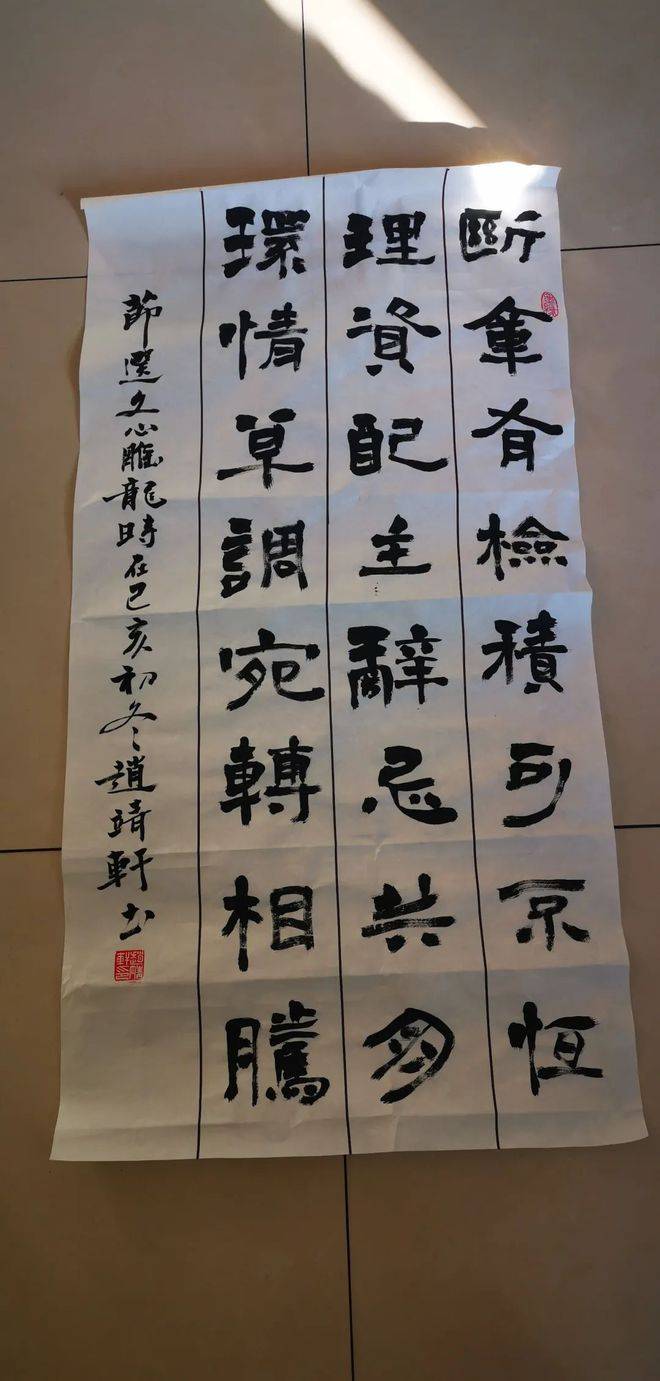 斷章有檢積句不恒
理資配主辭忌失朋
環情草調宛轉相騰
節選文心雕龍時在己亥初冬趙靖軒书